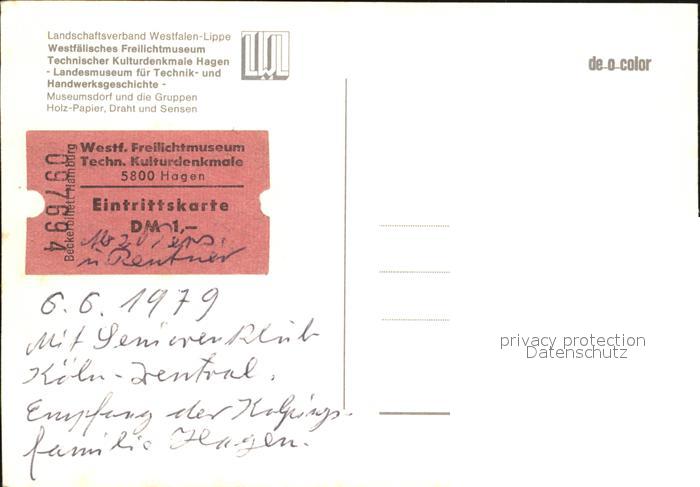 Landschaftsverband Westfalen-Lippe
Westfälisches Freilichtmuseum
Technischer Kulturdenkmale Hagen
- Landesmuseum für Technik- und
Handwerksgeschichte -
Museumsdorf und die Gruppen
Holz-Papier, Draht und Sensen
LWL
de-o-color
Westf. Freilichtmuseum
Techn. Kulturdenkmale
5800 Hagen
Eintrittskarte
DM 1,–
u Rentner
Beckerbillett Hamburg
097694
6.6.1979
Mit Seniorenklub
Köln-Zentral.
Empfang der Kolpings-
familie Hagen.
privacy protection
Datenschutz